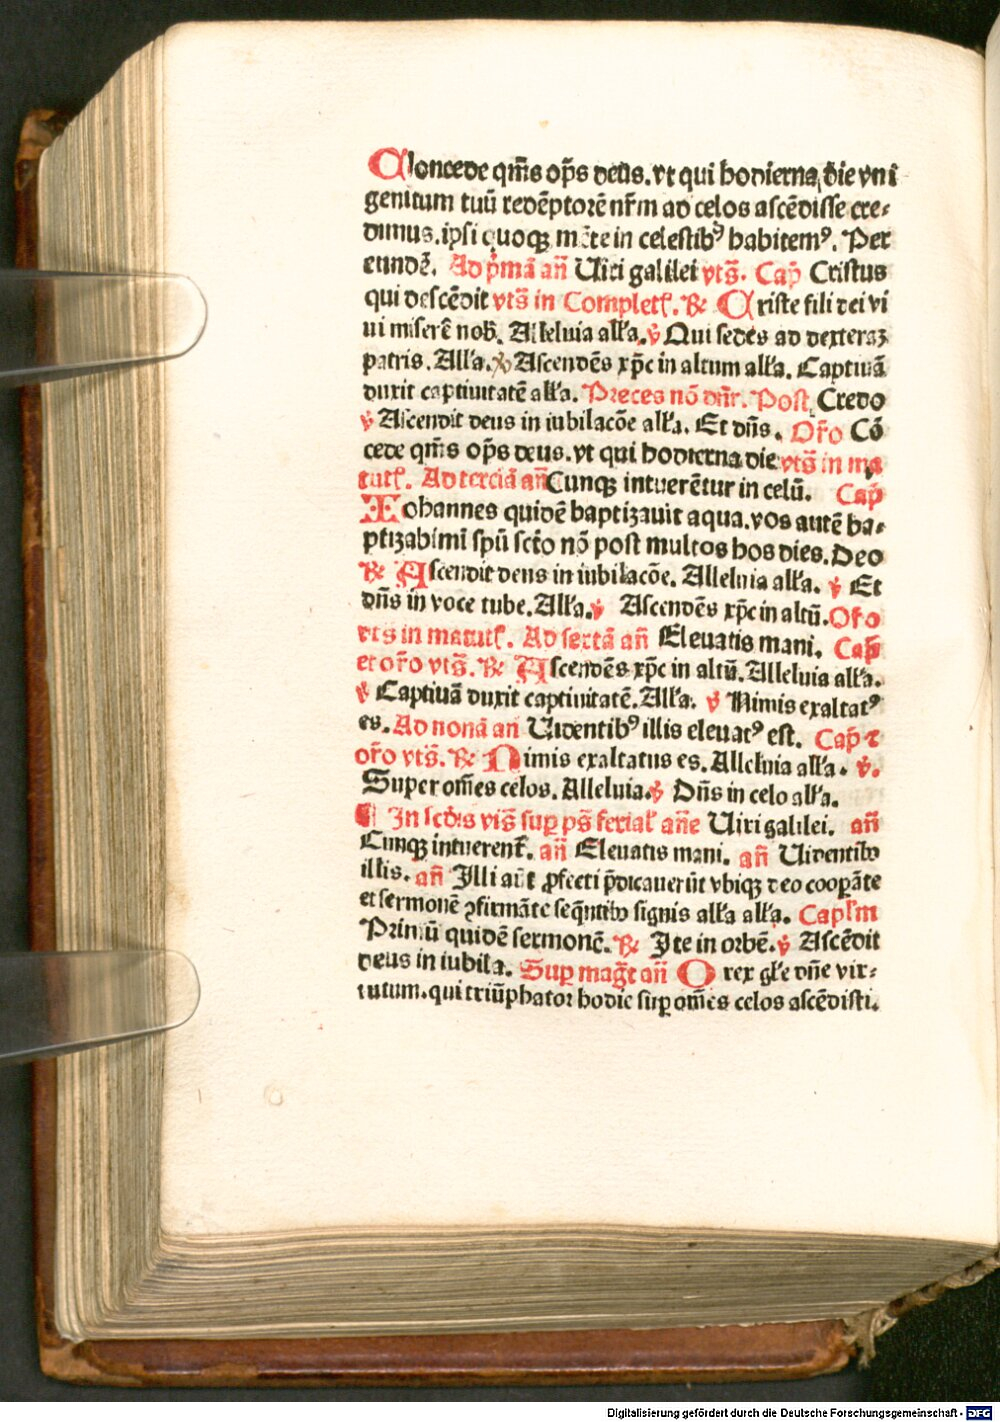 Concede qm̄s op̄s deus. vt qui hodierna die vni
genitum tuū redēptorē nr̄m ad celos ascēdisse cre⸗
dimus. ipsi quoqꝫ mēte in celestibꝰ habitemꝰ. Per
eundē. Ad p̄mā an̄ Uiri galilei vts̄. Cap̄ Cristus
qui descēdit vts̄ in Completꝭ. ℟ Criste fili dei vi
ui miserē nob̄. Alleluia all'a. ℣ Qui sedes ad dexteraꝫ
patris. All'a. ℣ Ascendēs xp̄c in altum all'a. Captiuā
duxit captiuitatē all'a. Preces nō dn̄r. Post Credo
℣ Ascendit deus in iubilacōe all'a. Et dn̄s. Or̄o Cō
cede qm̄s op̄s deus. vt qui hodierna die vts̄ in ma
tutꝭ. Ad terciā an̄ Cunqꝫ intuerētur in celū. Cap̄
Iohannes quidē baptizauit aqua. vos autē ba⸗
ptizabimī spū sct̄o nō post multos hos dies. Deo
℟ Ascendit deus in iubilacōe. Alleluia all'a. ℣ Et
dn̄s in voce tube. All'a. ℣ Ascendēs xp̄c in altū. Or̄o
vts in matutꝭ. Ad sextā an̄ Eleuatis mani. Cap̄
et or̄o vts̄. ℟ Ascendēs xp̄c in altū. Alleluia all'a.
℣ Captiuā duxit captiuitatē. All'a. ℣ Nimis exaltatꝰ
es. Ad nonā an̄ Uidentibꝰ illis eleuatꝰ est. Cap̄ ⁊
or̄o vts̄. ℟ Nimis exaltatus es. Alleluia all'a. ℣.
Super om̄es celos. Alleluia. ℣ Dn̄s in celo all'a.
¶ In scd̄is vis̄ suꝑ ps̄ ferial' an̄e Uiri galilei. an̄
Cunqꝫ intuerentꝭ. an̄ Eleuatis mani. an̄ Uidentibꝰ
illis. an̄ Illi aūt ꝓfecti p̄dicauerūt vbiqꝫ deo cooꝑāte
et sermonē ꝯfirmāte seq̄ntibꝰ signis all'a all'a. Capl'm
Primū quidē sermonē. ℟ Ite in orbē. ℣ Ascēdit
deus in iubila. Suꝑ maḡt an̄ O rex gl'e dn̄e vir⸗
tutum. qui triūphator hodie suꝑ om̄es celos ascēdisti.
Digitalisierung gefördert durch die Deutsche Forschungsgemeinschaft - DFG